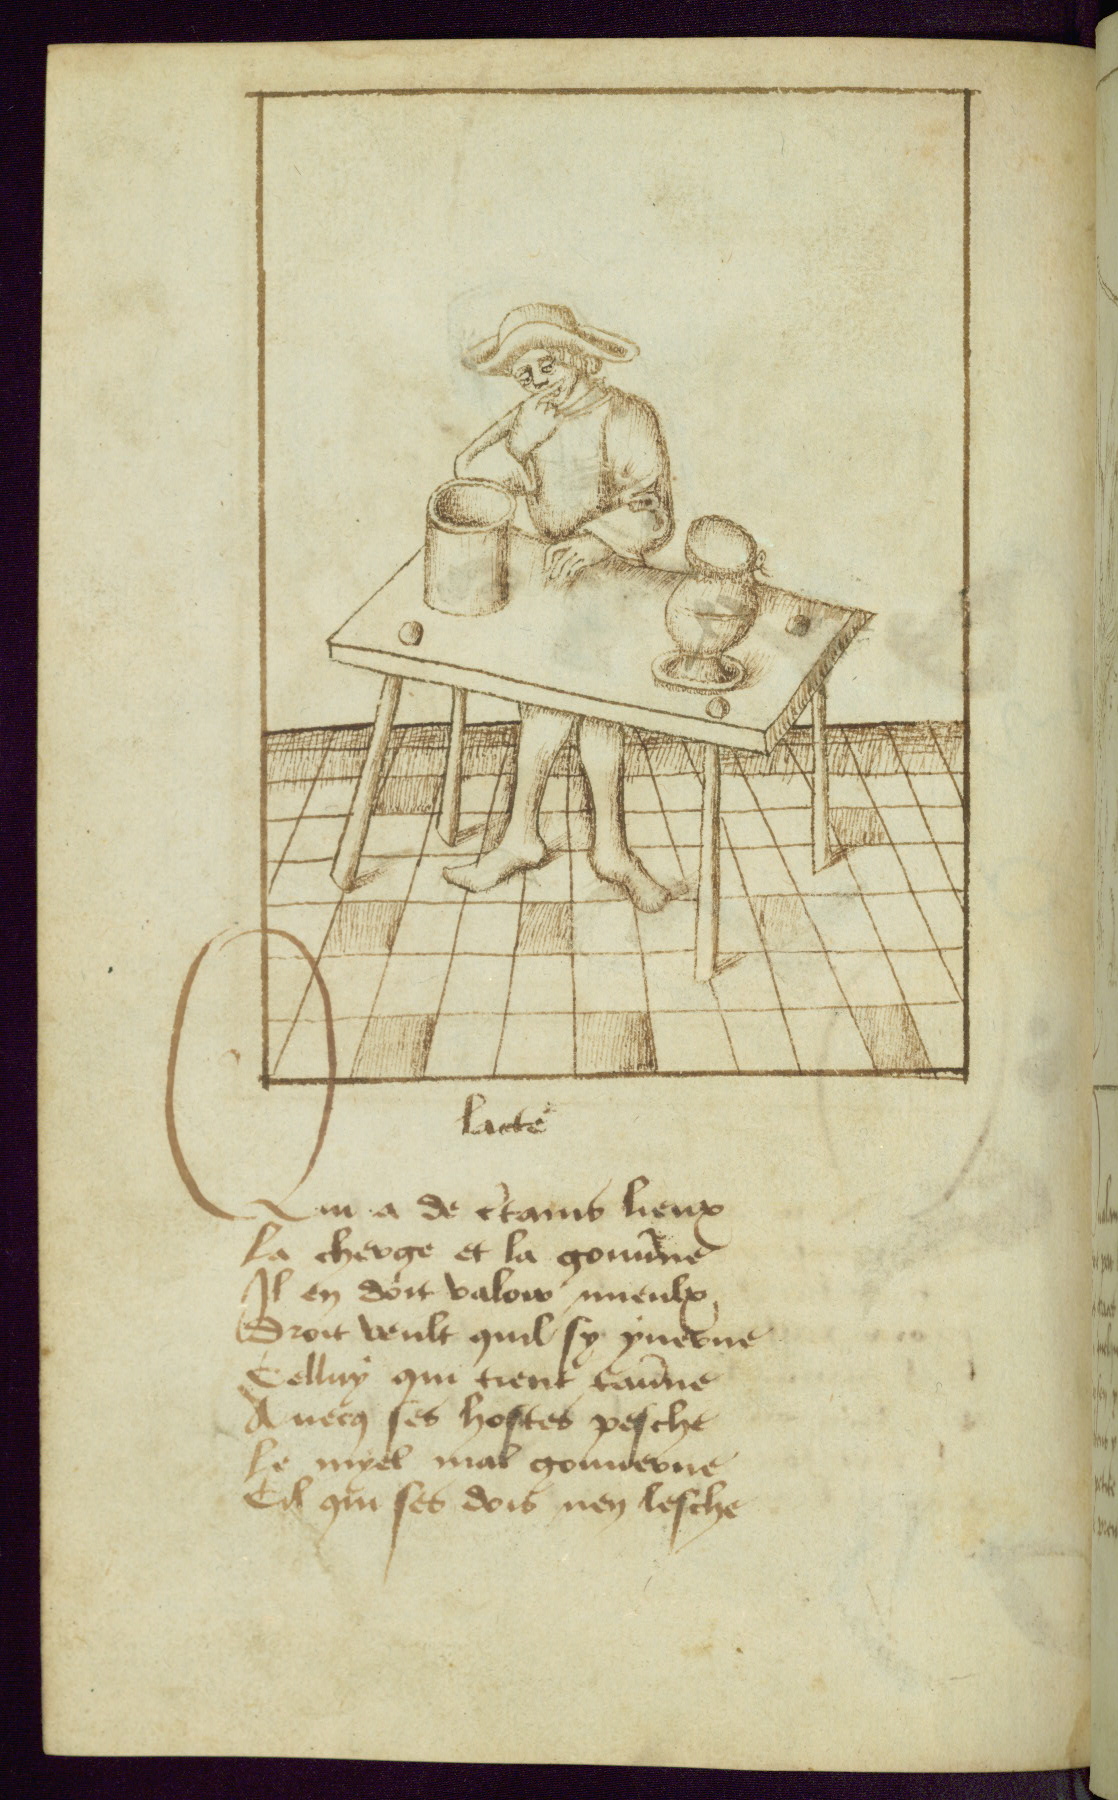 lacte
Qui a de c̃tains lieux
La cherge et la gouũne
Il en doit valoir mieulx
Droit veult quil sy yuerne
Celluy qui tient tauũne
Auecq ses hostes pesche
Le myel mal gouuerne
Cil qui ses dois nen lesche